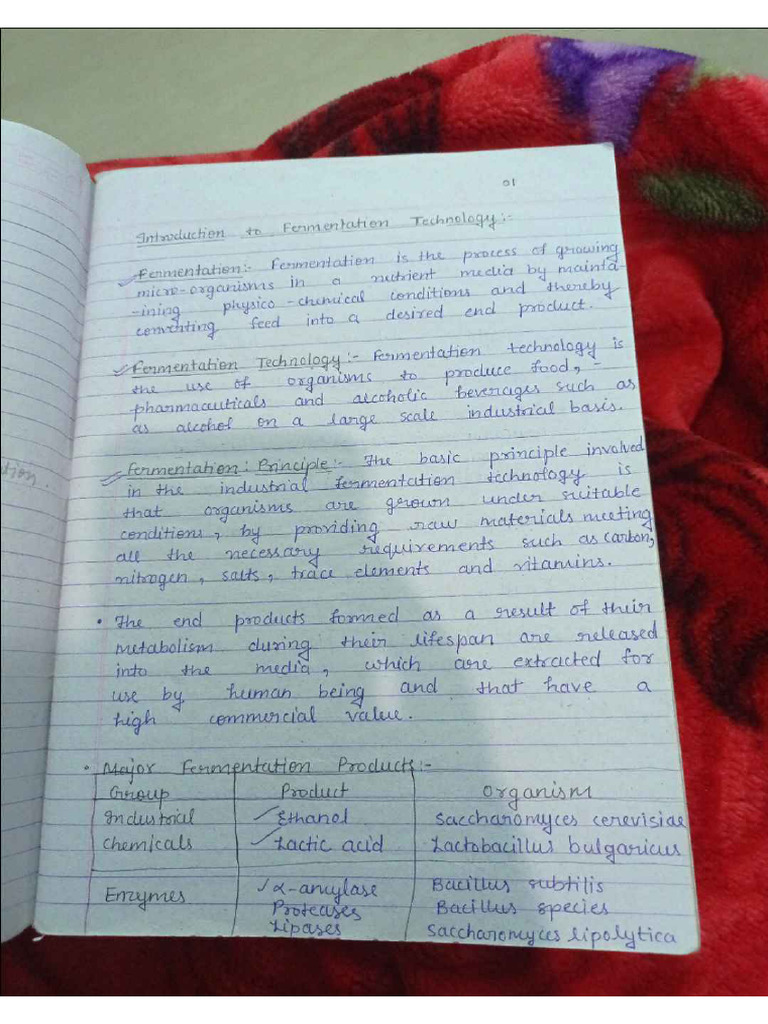 01
Introduction to Fermentation Technology:-
Fermentation:- Fermentation is the process of growing
micro-organisms in a nutrient media by mainta-
-ining physico-chemical conditions and thereby
converting feed into a desired end product.
Fermentation Technology:- Fermentation technology is
the use of organisms to produce food, -
pharmaceuticals and alcoholic beverages such as
as alcohol on a large scale industrial basis.
Fermentation: Principle:- The basic principle involved
in the industrial fermentation technology is
that organisms are grown under suitable
conditions, by providing raw materials meeting
all the necessary requirements such as carbon,
nitrogen, salts, trace elements and vitamins.
• The end products formed as a result of their
metabolism during their lifespan are released
into the media, which are extracted for
use by human being and that have a
high commercial value.
• Major Fermentation Products:-
Group Product Organism
Industrial Ethanol Saccharomyces cerevisiae
Chemicals Lactic acid Lactobacillus bulgaricus
Enzymes α-amylase Bacillus subtilis
Proteases Bacillus species
Lipases Saccharomyces lipolytica